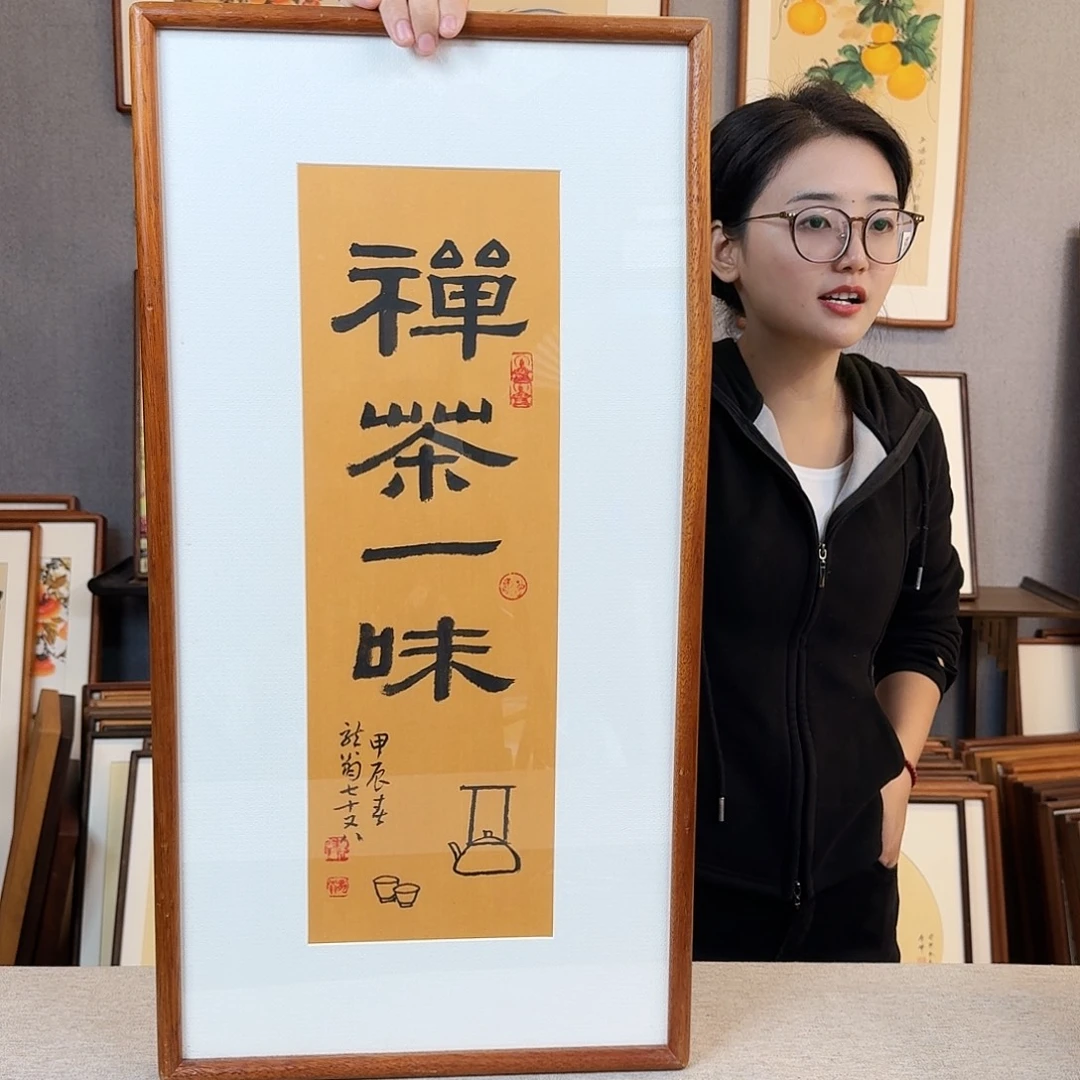 禪茶一味
甲辰春
龍翁七十又八